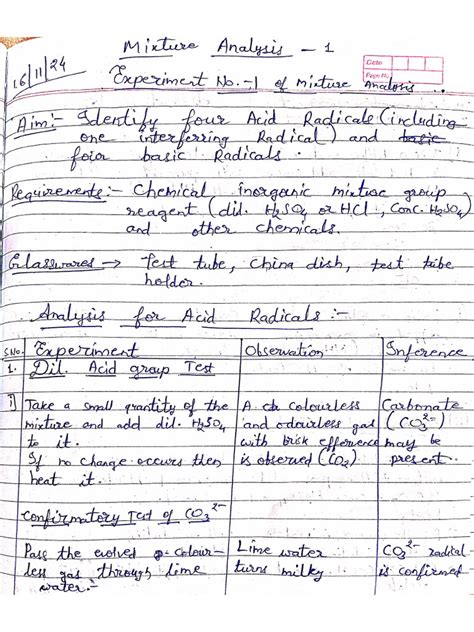 Mixture Analysis - 1
16/11/24
Date
Page No.
Experiment No.-1 of mixture Analosis
Aim:- Identify four Acid Radicals (including
one interferring Radical) and basic
foior basic Radicals.
Requirements:- Chemical inorganic mixture group
reagent (dil. H2SO4 or HCl, Conc. H2SO4)
and other chemicals.
Glasswares → Test tube, China dish, test tube
holder.
Analysis for Acid Radicals :-
S.No. Experiment Observation Inference
1. Dil. Acid group Test
i) Take a small quantity of the A ch colourless Carbonate
mixture and add dil. H2SO4 and odourless gas (CO3²⁻)
to it. with brisk effervence may be
If no change occurs then is observed (CO2) present.
heat it.
Confirmatory Test of CO3²⁻
Pass the evolved colour- Lime water CO3²⁻ radical
less gas through lime turns milky is confirmed
water.-